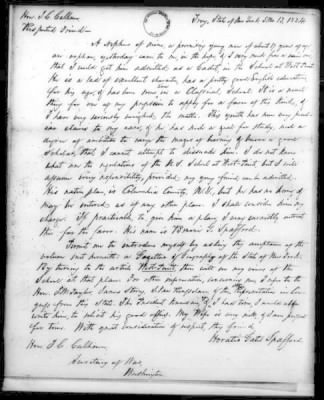 Hon. J. C. Calhoun Troy, State of New York, 5 Mo. 12, 1824
Respected Friend
A Nephew of mine, a promising young man of about 17 years of age,
an orphan, yesterday came to me, in the hope I may
that I could get him admitted as a Cadet, in the School at West Point.
He is a lad of excellent character, has a pretty good English education
for his age, & has been some time in a Classical School. It is a novel
thing for one of my profession to apply for a favor of this kind, &
I have very seriously weighed the matter. This youth has now very
claims to my care, & he has such a zeal for study, such a
degree of ambition to carry the wages of becoming a good
Scholar, that I cannot attempt to dissuade him. I do not know
what are the regulations of the U.S. School at West-Point, but I will
assume every responsibility, provided my young friend can be admitted.
His native place is Columbia County, N.Y., but he has no home, &
may be entered as of any other place. I shall consider him my
charge. If practicable, to give him a place, I may earnestly entreat
thee for the favor. His name is G. Spafford.
Permit me to introduce myself by asking the acceptance of the
volume sent herewith, a Gazetteer & Geography of the State of New York.
By turning to the article West-Point, thou will see my views of the
School at that place. For other information, concerning me, I refer to the
Hon. J. W. Taylor, James Strong, & to the Representatives in Congress
from this State. The President knows me, & if I had time I would
write him, to solicit his good offices. My Wife is very sick, & I am pressed
for time. With great consideration & respect, thy friend,
Horatio Gates Spafford.
Hon. J. C. Calhoun,
Secretary of War,
Washington